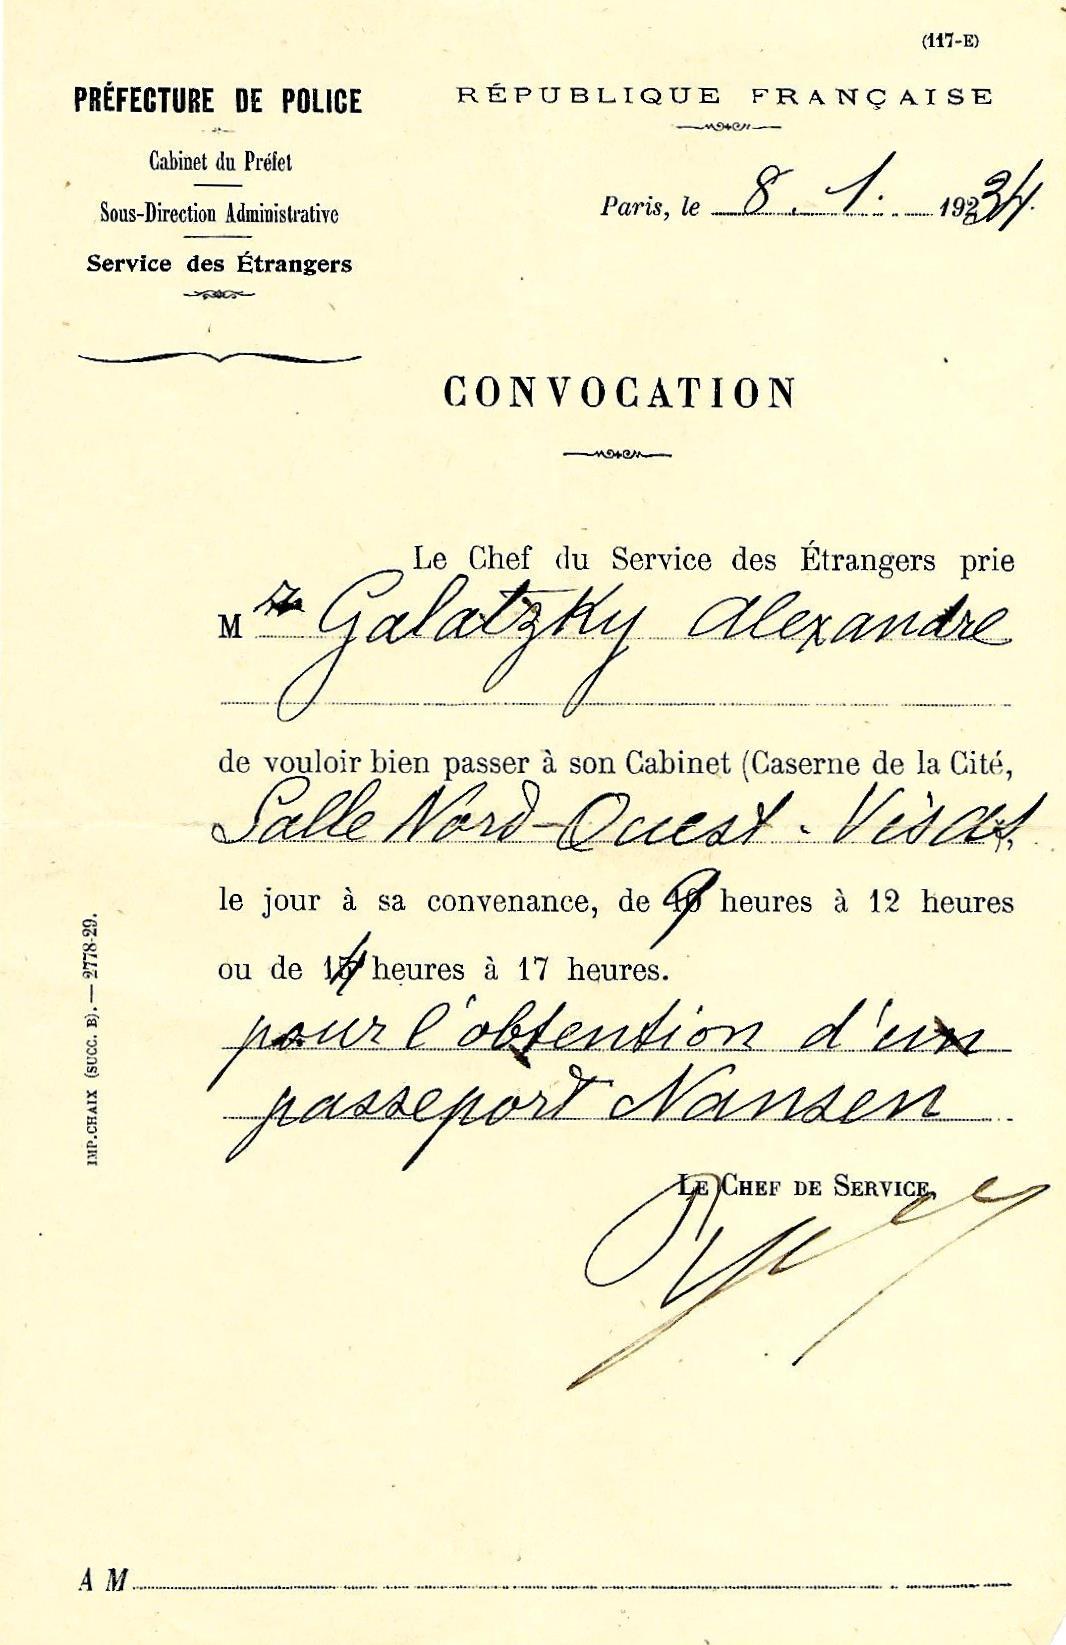 (117-E)
PRÉFECTURE DE POLICE
Cabinet du Préfet
Sous-Direction Administrative
Service des Étrangers
RÉPUBLIQUE FRANÇAISE
Paris, le 8. 1. 1934.
CONVOCATION
Le Chef du Service des Étrangers prie
Mr Galatzky Alexandre
de vouloir bien passer à son Cabinet (Caserne de la Cité,
Salle Nord-Ouest. Visas,
le jour à sa convenance, de 9 heures à 12 heures
ou de 14 heures à 17 heures.
pour l'obtention d'un
passeport Nansen
LE CHEF DE SERVICE,
IMP. CHAIX (SUCC. B). — 2778-29.
A M